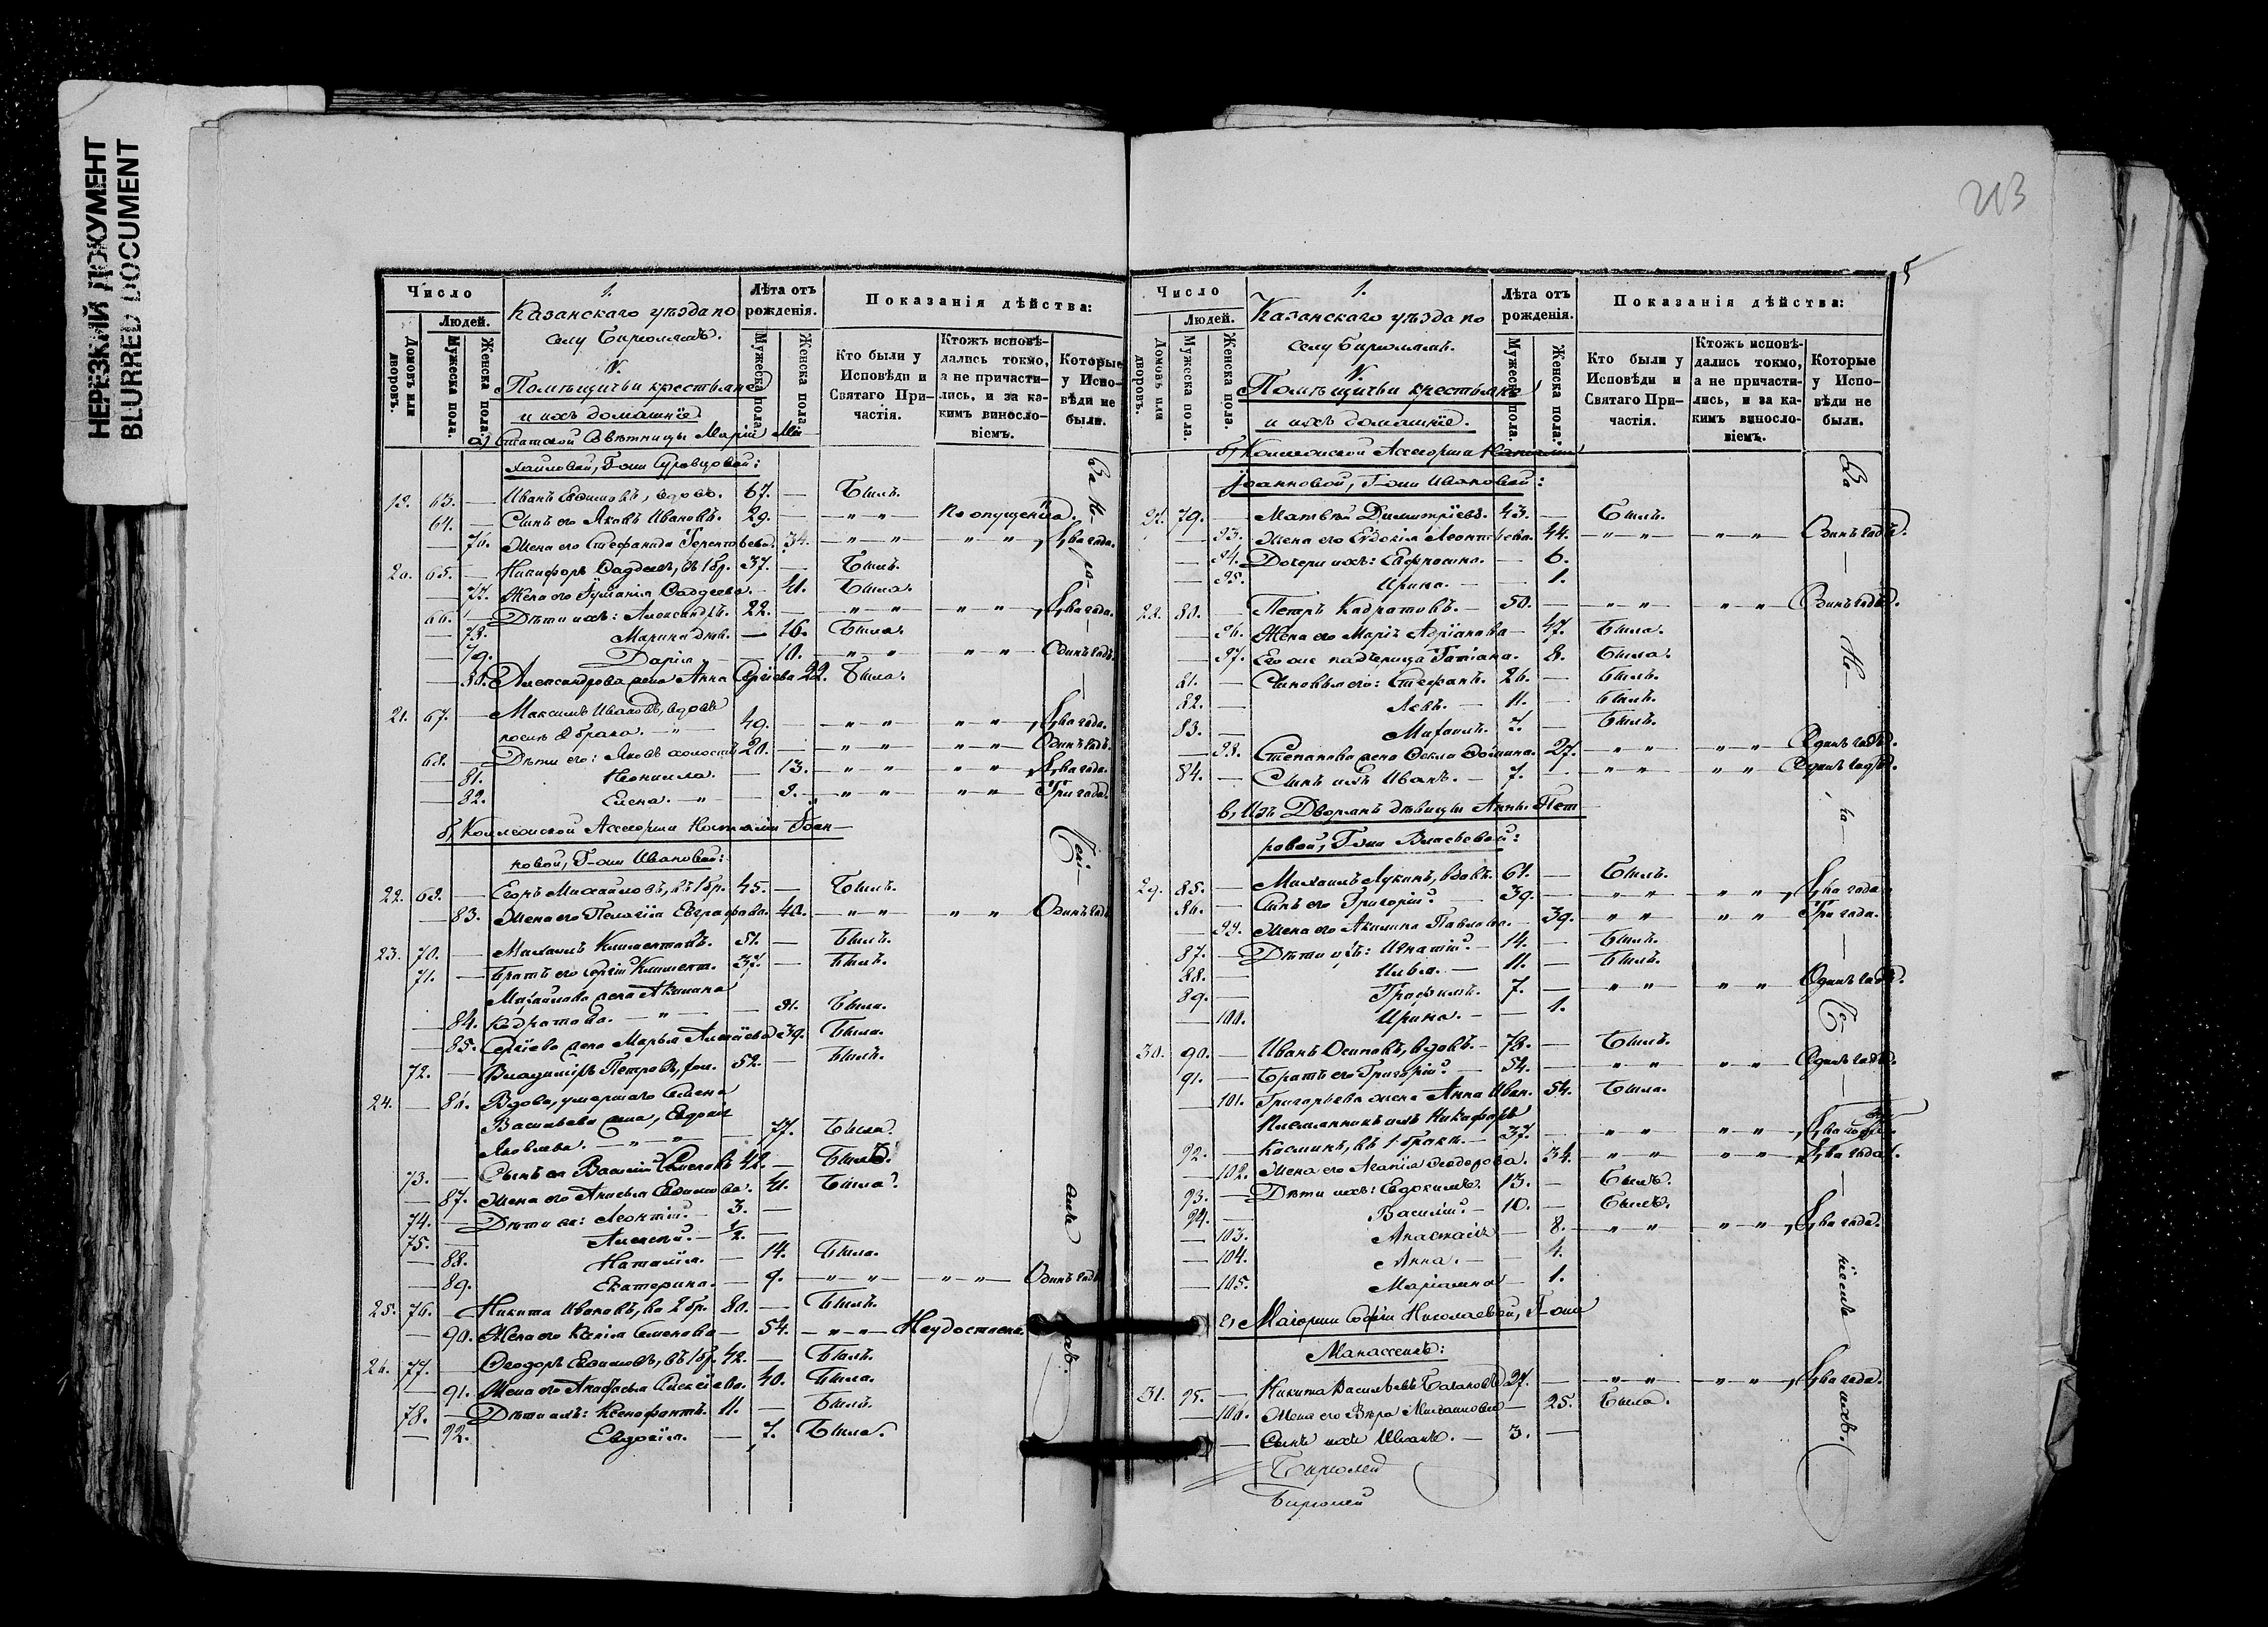 НЕРЕЗКИЙ ДОКУМЕНТ
BLURRED DOCUMENT
213
5
Число
Людей.
Домовъ или дворовъ.
Мужеска пола.
Женска пола.
1.
Казанскаго уѣзда по
селу Бирюлямъ.
V.
Помѣщичьи крестьяне
и ихъ домашніе
а) Статской Совѣтницы Маріи Ми
хайловой, Г-жи Суровцовой:
Лѣта отъ рожденія.
Мужеска пола.
Женска пола.
Показанія дѣйства:
Кто были у Исповѣди и Святаго Причастія.
Ктожъ исповѣдались токмо, а не причастились, и за какимъ винословіемъ.
Которые у Исповѣди не были.
63. — Иванъ Евдимовъ, вдовъ. 67. — Былъ.
64. — Сынъ его Яковъ Ивановъ. 29. — — " — По опущенію.
— 76. Жена его Стефанида Терентьева. 34. — " — " — " Два года.
20. 65. — Никифоръ Фадѣевъ, въ 1 бр. 37. — Былъ.
— 77. Жена его Гулианія Фадѣева. — 41. Была.
66. — Дѣти ихъ: Александръ. 22. — — " — " — " Два года.
— 78. Марина дѣв. — 16. Была.
— 79. Дарія — 10. — " — " — " Одинъ годъ.
— 80. Александрова жена Анна Сергіева 22. Была.
21. 67. — Максимъ Ивановъ, вдовъ
послѣ 2 брака. — " — 49. — — " — " — " Два года.
68. — Дѣти его: Яковъ холостъ 20. — — " — " — " Одинъ годъ.
— 81. Неонилла. — 13. — " — " — " Два года.
— 82. Елена. — " — 9. — " — " — " Три года.
б) Коллежской Ассесорши Наталіи Іоан—
новой, Г-жи Ивановой:
22. 69. — Егоръ Михайловъ, въ 1 бр. 45. — Былъ.
— 83. Жена его Пелагія Евграфова. 40. — " — " " Одинъ годъ
23. 70. — Михаилъ Климентовъ. 51. — Былъ.
71. — Братъ его Сергій Климент. 37. — Былъ.
Михайлова жена Акилина
— 84. Кодратова. — " — 31. Была.
— 85. Сергіева жена Марья Алексіева 39. Была.
72. — Владиміръ Петровъ, 52. — Былъ.
24. — 86. Вдова, умершаго Семена
Васильева жена, Евдокія
Яковлева. — " — " — 77. Была.
73. — Сынъ ея Василій Семеновъ 42. — Былъ.
— 87. Жена его Анисья Евдимова. 41. Была.
74. — Дѣти ея: Леонтій. — 3. —
75. — Алексѣй. — ½. —
— 88. Наталія. — 14. Была.
— 89. Екатерина. — 9. — " — " — " — Одинъ годъ
25. 76. — Никита Ивановъ, во 2 бр. 80. — Былъ.
— 90. Жена его Ксенія Семенова — 54. — " — " — Неудостоена.
26. 77. — Ѳеодоръ Евдимовъ, въ 1 бр. 42. — Былъ.
— 91. Жена его Анафасья Алексіева. 40. Была.
78. — Дѣти ихъ: Ксенофонтъ. 11. — Былъ.
— 92. Евдокія. — 7. Была.
Число
Людей.
Домовъ или дворовъ.
Мужеска пола.
Женска пола.
1.
Казанскаго уѣзда по
селу Бирюлямъ.
V.
Помѣщичьи крестьяне
и ихъ домашніе.
б) Коллежской Ассесорши Наталіи
Іоанновой, Г-жи Ивановой:
Лѣта отъ рожденія.
Мужеска пола.
Женска пола.
Показанія дѣйства:
Кто были у Исповѣди и Святаго Причастія.
Ктожъ исповѣдались токмо, а не причастились, и за какимъ винословіемъ.
Которые у Исповѣди не были.
27. 79. — Матвѣй Димитріевъ. 43. — Былъ.
— 93. Жена его Евдокія Леонтьева. 44. — " — " — " — Одинъ годъ.
— 94. Дочери ихъ: Евфросина. — 6.
— 95. Ирина. — 1.
28. 80. — Петръ Кадратовъ. — 50. — — " — " " — Одинъ годъ.
— 96. Жена его Марія Адріанова — 47. Была.
— 97. Его же падчерица Татіана. 8. Была.
81. — Сыновья его: Стефанъ. 26. — Былъ.
82. — Левъ. — 11. — Былъ.
83. — Михаилъ. 7. — Былъ.
— 98. Степанова жена Ѳекла Ѳомина. 27. — " — " — " — Одинъ годъ.
84. — Сынъ ихъ Иванъ. — 7. — " — " — " — Одинъ годъ.
в) Изъ Дворянъ дѣвицы Анны Пет
ровой, Г-жи Власьевой:
29. 85. — Михаилъ Лукинъ, вдовъ. 61. — Былъ.
86. — Сынъ его Григорій. — 39. — — " — " — " Два года.
— 99. Жена его Акилина Павлова. 39. — " " — " Три года.
87. — Дѣти ихъ: Игнатій. — 14. — Былъ.
88. — Илья. — 11. — Былъ.
89. — Трофимъ. 7. — — " — " " — Одинъ годъ.
— 100. Ирина. — 1.
30. 90. — Иванъ Осиповъ, вдовъ. — 78. — Былъ.
91. — Братъ его Григорій. — 54. — — " — " " — Одинъ годъ.
— 101. Григорьева жена Анна Иван. 54. Была.
Племянникъ ихъ Никифоръ
92. — Косминъ, въ 1 бракѣ. — 37. — " " — " — "
— 102. Жена его Агапія Ѳеодорова. 34. — " — " — " Два года.
93. — Дѣти ихъ: Евдокимъ. 13. — Былъ.
94. — Василій. — 10. — Былъ.
— 103. Анастасія — 8. — " — " — " Два года.
— 104. Анна. — 4.
— 105. Маріамна — 1.
г) Маіорши Софіи Николаевой, Г-жи
Манассеинъ:
31. 95. — Никита Васильевъ 27. — — " — " — " Два года.
— 106. Жена его Вѣра Михайлова — 25. Была.
— Сынъ ихъ Иванъ. — 3. —
Бирюлей
Бирюлей